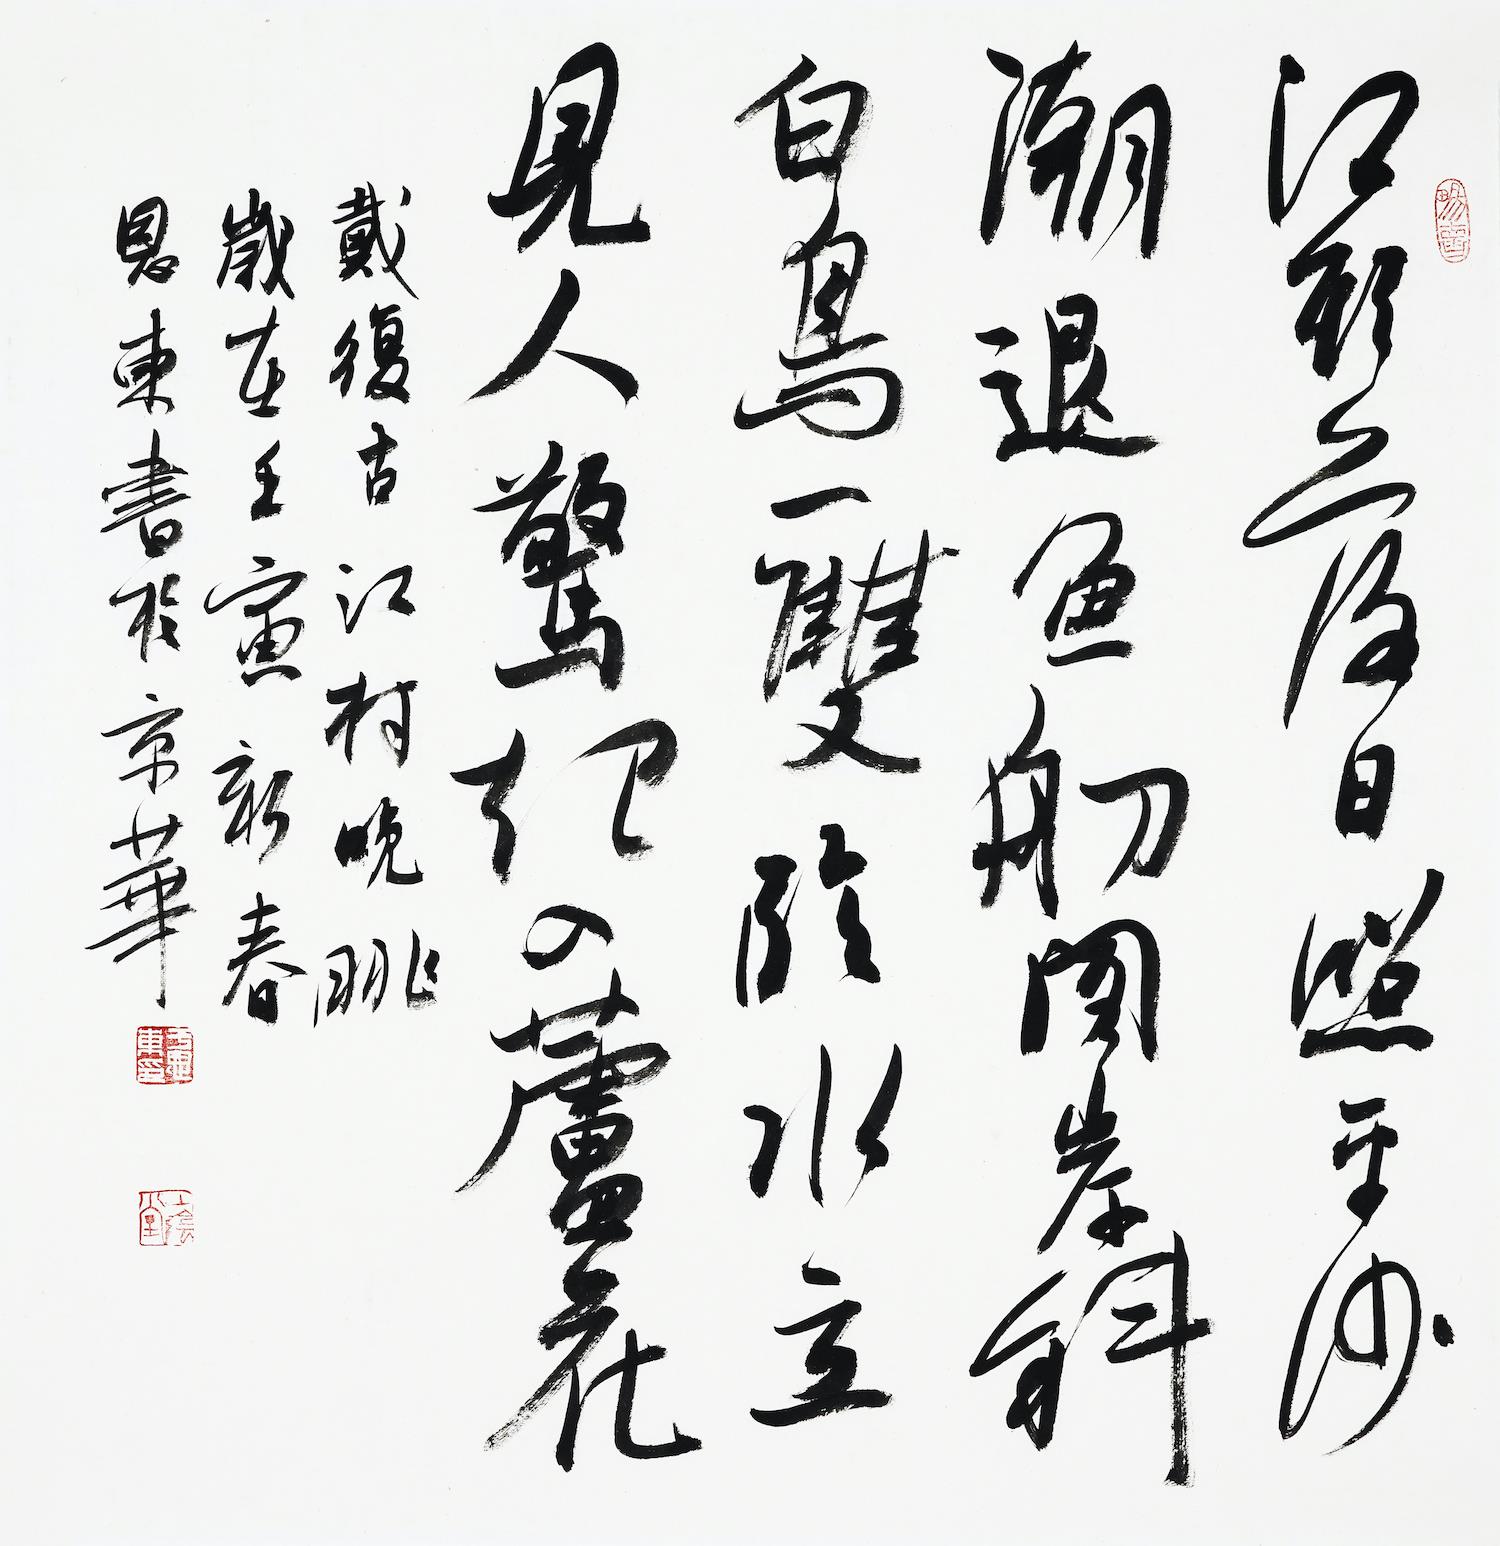 江頭落日照平沙
潮退魚舠閣岸斜
白鳥一雙臨水立
見人驚起入蘆花
戴復古江村晚眺
歲在壬寅新春
恩東書於京華
方恩東印